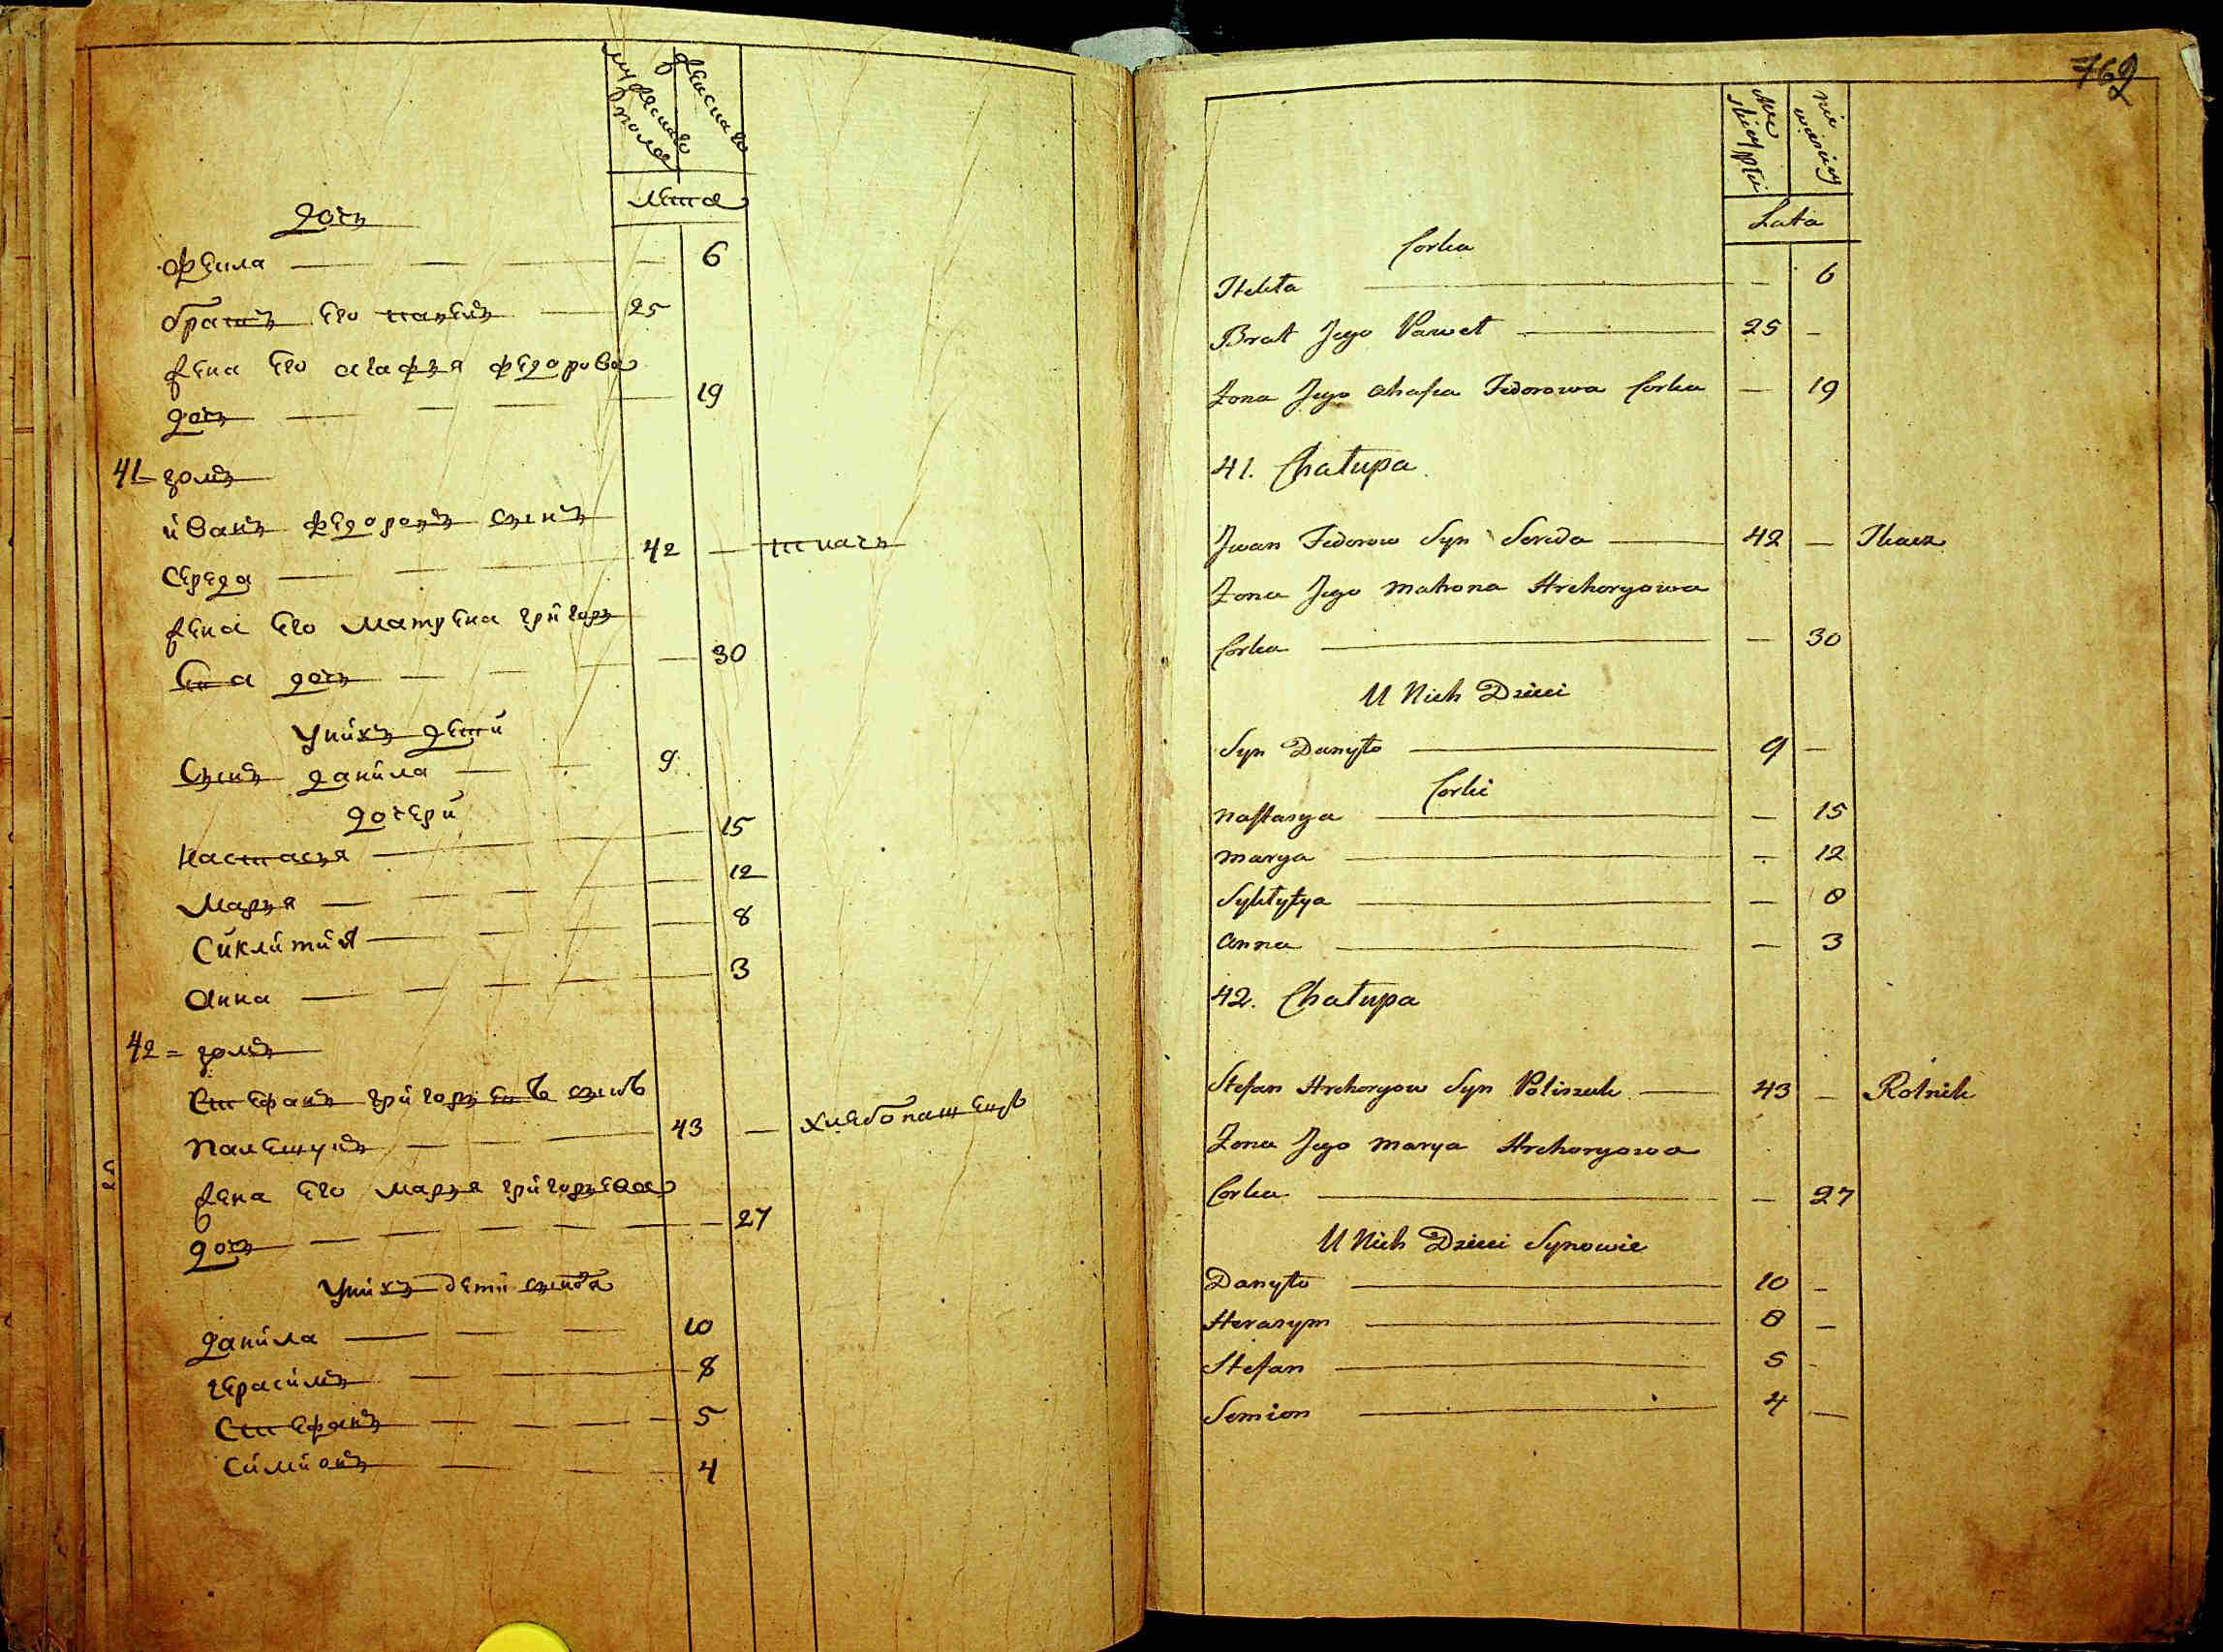 мужеска
пола
женска
лета
дочь
Фекла — 6
братъ его павелъ — 25
жена его агафья федорова
дочь — 19
41 домъ
иванъ федоровъ сынъ
середа — 42 — ткачь
жена его матрена григорь
ева дочь — 30
у нихъ дети
сынъ данила — 9
дочери
настасья — 15
марья — 12
Сиклития — 8
анна — 3
42 = домъ
Стефанъ григорьевъ сынъ
палещукъ — 43 — хлебопашецъ
жена его марья григорьева
дочь — 27
у нихъ дети сынова
данила — 10
герасимъ — 8
Стефанъ — 5
симионъ — 4
762
Lata
Corka
Brat Jego Paweł — 25 —
Zona Jego Ahafia Fedorowa Corka — 19
41. Chałupa
Jwan Fedorow Syn Sereda — 42 — Tkacz
Zona Jego Matrona Hrehoryowa
Corka — 30
U Nich Dzieci
Syn Danyło — 9 —
Corki
Nastasya — 15
Marya — 12
Sykłytya — 8
Anna — 3
42. Chałupa
Stefan Hrehoryow Syn Poliszuk — 43 — Rolnik
Zona Jego Marya Hrehoryowa
Corka — 27
U Nich Dzieci Synowie
Danyło — 10 —
Herasym — 8 —
Stefan — 5 -
Semion — 4 —